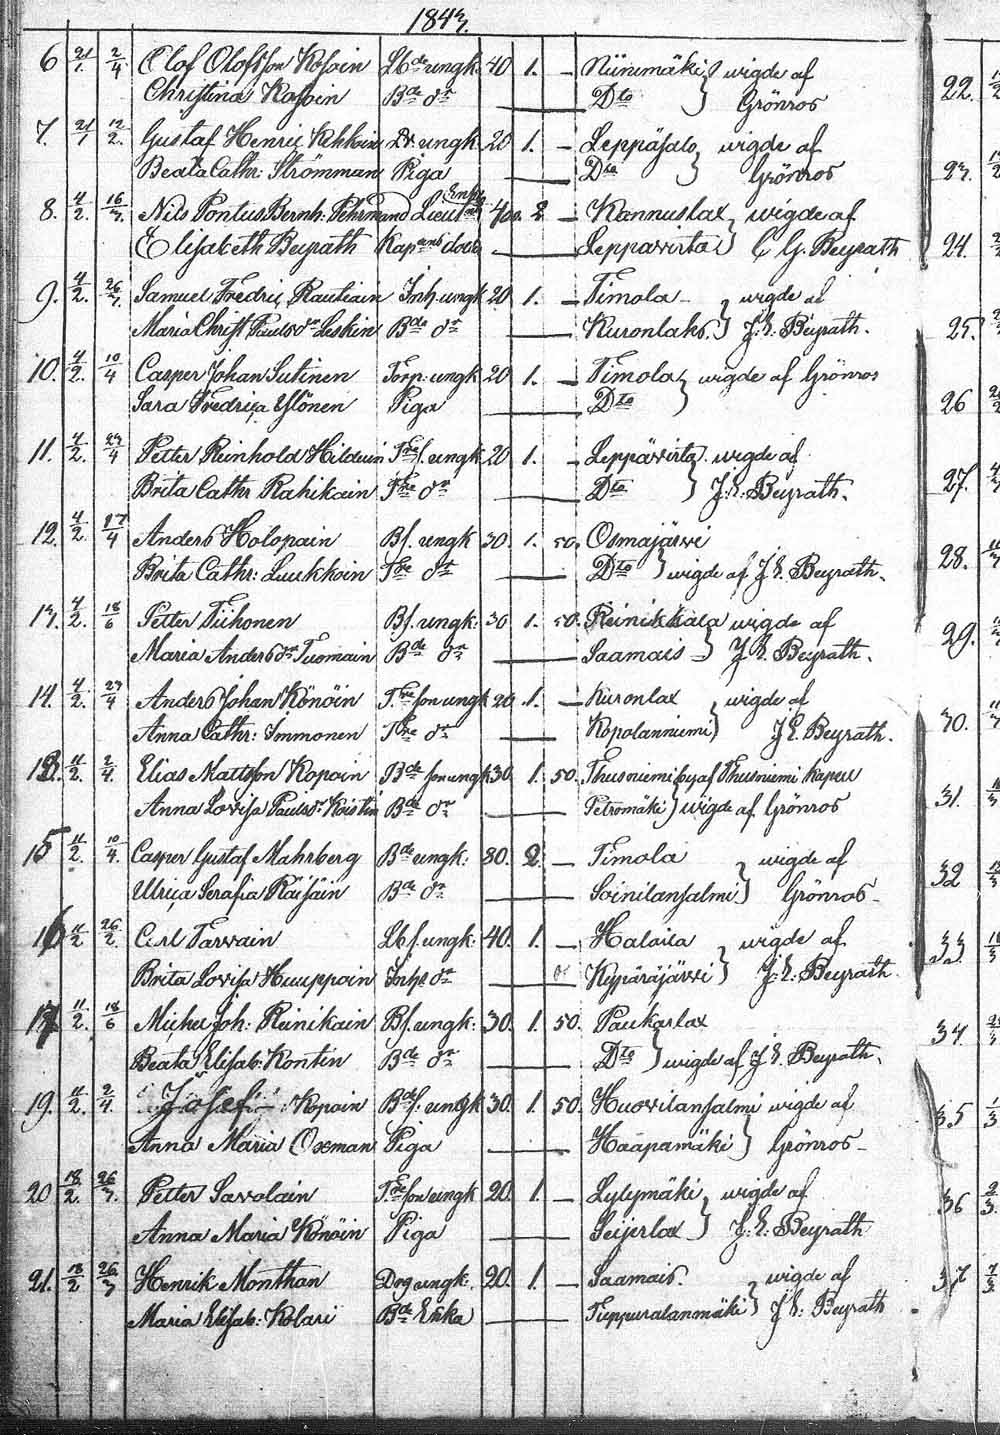 1843.
6 21/1. 2/4. Olof Olofsson Kosoin Lbde ungk. 40 1. — Niinimäki wigde af
Christina Kosoin Bde dr — Dto Grönros
7. 21/1 12/2. Gustaf Henric Kehkoin Dr. ungk. 20 1. — Leppäsalo wigde af
Beata Cathr: Strömman Piga — Dto Grönros
8. 4/2. 16/3. Nils Pontus Bernh. Fehrmand Lieut 2 — Kannuslax wigde af
Elisabeth Beyrath Kapens dott — Leppävirta C G. Beyrath
9. 4/2. 26/3. Samuel Fredric Rautiain Inh. ungk 20 1. — Timola — wigde af
Maria Christ Paulsdr Leskin Bde dr — Kuronlaks. J. E. Beyrath.
10. 4/2. 10/4 Casper Johan Sutinen Torp. ungk 20 1. — Timola wigde af Grönros
Sara Fredrica Ylönen Piga — Dto
11. 4/2. 23/4 Petter Reinhold Hilduin Tres. ungk 20 1. — Leppävirta wigde af
Brita Cathr Rahikain Tre dr — Dto J. E. Beyrath.
12. 4/2. 17/4 Anders Holopain Bs. ungk 30. 1. 50. Osmajärwi
Brita Cathr: Luukkoin Tre dr — Dto wigde af J E. Beyrath.
13. 4/2. 18/6 Petter Tiihonen Bs. ungk: 30 1. 50. Reinikkala wigde af
Maria Andersdr Tuomain Bde dr — Saamais J E. Beyrath.
14. 4/2. 23/4 Anders Johan Könöin Tre son ungk 20 1. — Kuronlax wigde af
Anna Cathr: Immonen Tre dr — Kopolanniemi J E. Beyrath.
11/2. 2/4. Elias Mattsson Kopoin Bde son ungk 30. 1. 50. Thusniemi by af Thusniemi kapell
Anna Lovisa Paulsdr Koistin Bde dr — Petromäki wigde af Grönros
15 11/2. 10/4. Casper Gustaf Mahrberg Bde ungk: 80. 2 — Timola wigde af
Ulrica Serafia Räisäin Bde dr — Soinilansalmi Grönros —
16 11/2 26/2. Carl Tarvain Lb. s. ungk: 40. 1. — Halaila wigde af
Brita Lovisa Huuppoin Inhs dr — Kypäräjärvi J. E. Beyrath
17 11/2. 18/6 Michel Joh: Reinikain Bs. ungk: 30. 1. 50. Paukarlax
Beata Elisab: Kontin Bde dr — Dto wigde af J E. Beyrath.
19. 11/2. 2/4. Josef Kopoin Bds. ungk 30. 1. 50. Huovilansalmi wigde af
Anna Maria Oxman Piga — Haapamäki Grönros —
20 18/2. 26/3. Petter Savolain Tre son ungk 20. 1. — Lylymäki wigde af
Anna Maria Könöin Piga — Seijerlax J. E. Beyrath
21. 18/2 26/3 Henrik Monthan Dog ungk: 20. 1. — Saamais. wigde af
Maria Elisab: Kolari Bde Enka — Tuppuralanmäki J E: Beyrath
22.
23.
24.
25.
26
27.
28.
29.
30.
31.
32
33
34.
35
36
37